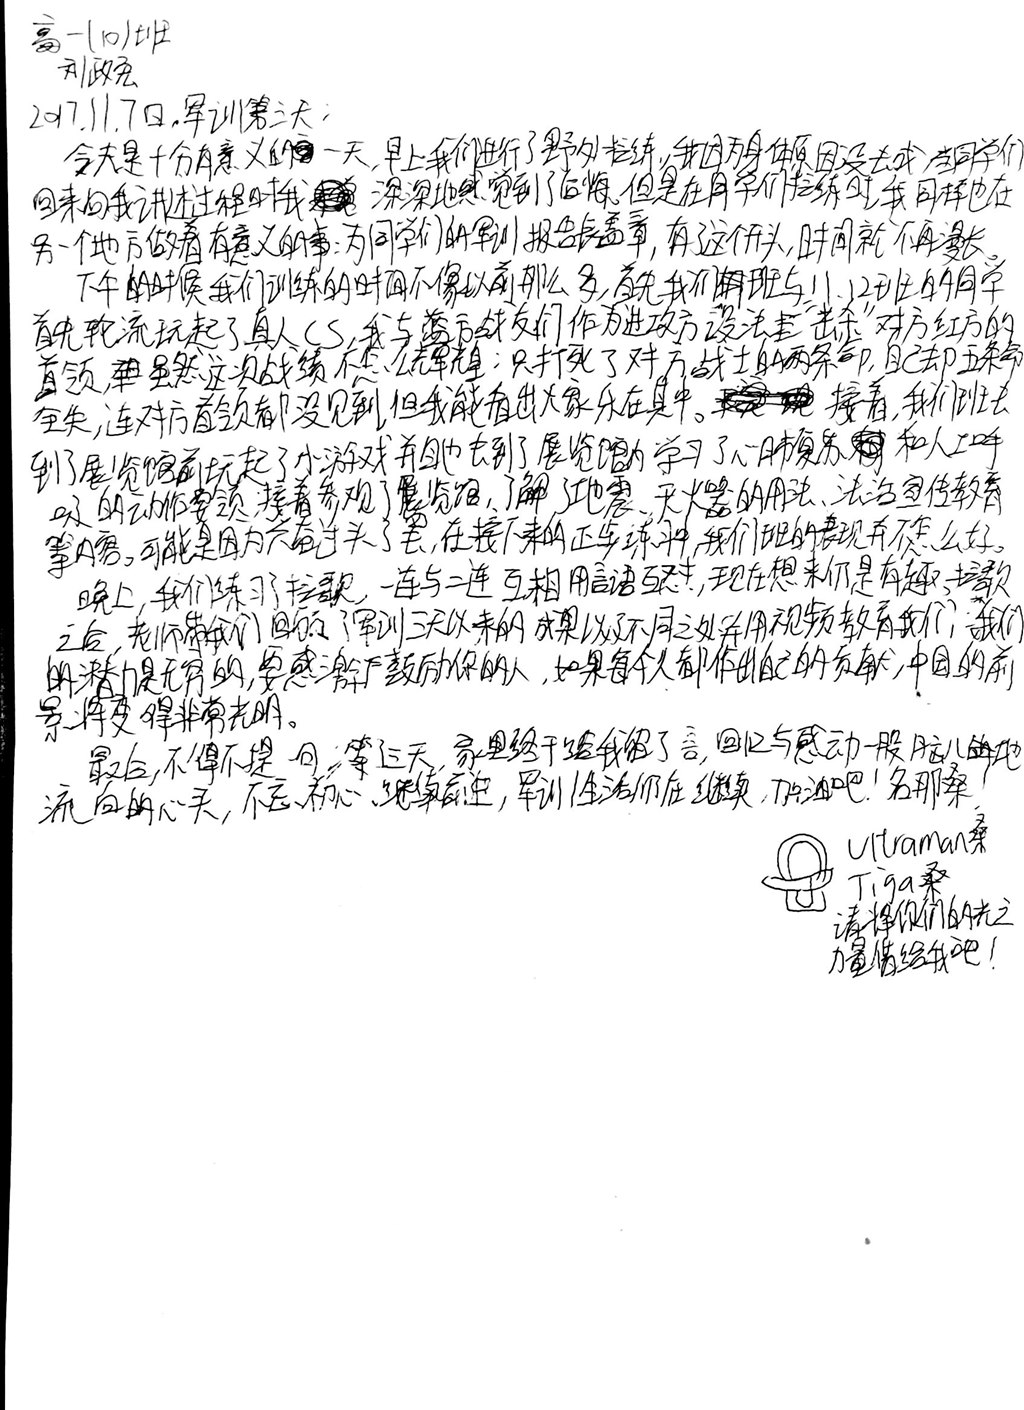 高一(10)班
刘政宏
2017.11.7日.军训第三天:
今天是十分有意义的一天,早上我们进行了野外拉练,我因为身体原因没去成,当同学们
回来向我讲述过程时我深深地感觉到了后悔.但是在同学们拉练时,我同样也在
另一个地方做着有意义的事:为同学们的军训报告表盖章,有了这个开头,时间就不再漫长。
下午的时候我们训练的时间不像以前那么多,首先我们班与11、12班的同学
首先轮流玩起了真人CS,我与蓝方战友们作为进攻方设法去"击杀"对方红方的
首领,虽然这次战绩不怎么辉煌:只打死了对方战士的两条命,自己却五条命
全失,连对方首领都没见到,但我能看出大家乐在其中。接着,我们班去
到了展览馆前玩起了小游戏并且也去到了展览馆内学习了心肺复苏和人工呼
吸的动作要领,接着参观了展览馆,了解了地震、灭火器的用法、法治宣传教育
等内容。可能是因为兴奋过头了罢,在接下来的正步练习中,我们班的表现并不怎么好。
晚上,我们练习了拉歌,一连与二连互相用言语互怼,现在想来仍是有趣.拉歌
之后,老师带我们回顾了军训三天以来的成果以及不同之处并用视频教育我们;我们
的潜力是无穷的,要感激严鼓励你的人,如果每个人都作出自己的贡献,中国的前
景将变得非常光明。
最后,不得不提一句,第三天,家里终于给我留了言,回忆与感动一股脑儿的地
流向的心头,不忘初心、继续前进,军训生活仍在继续,加油吧!名那桑!
Ultraman桑
Tiga桑
请将你们的光之
力量借给我吧!